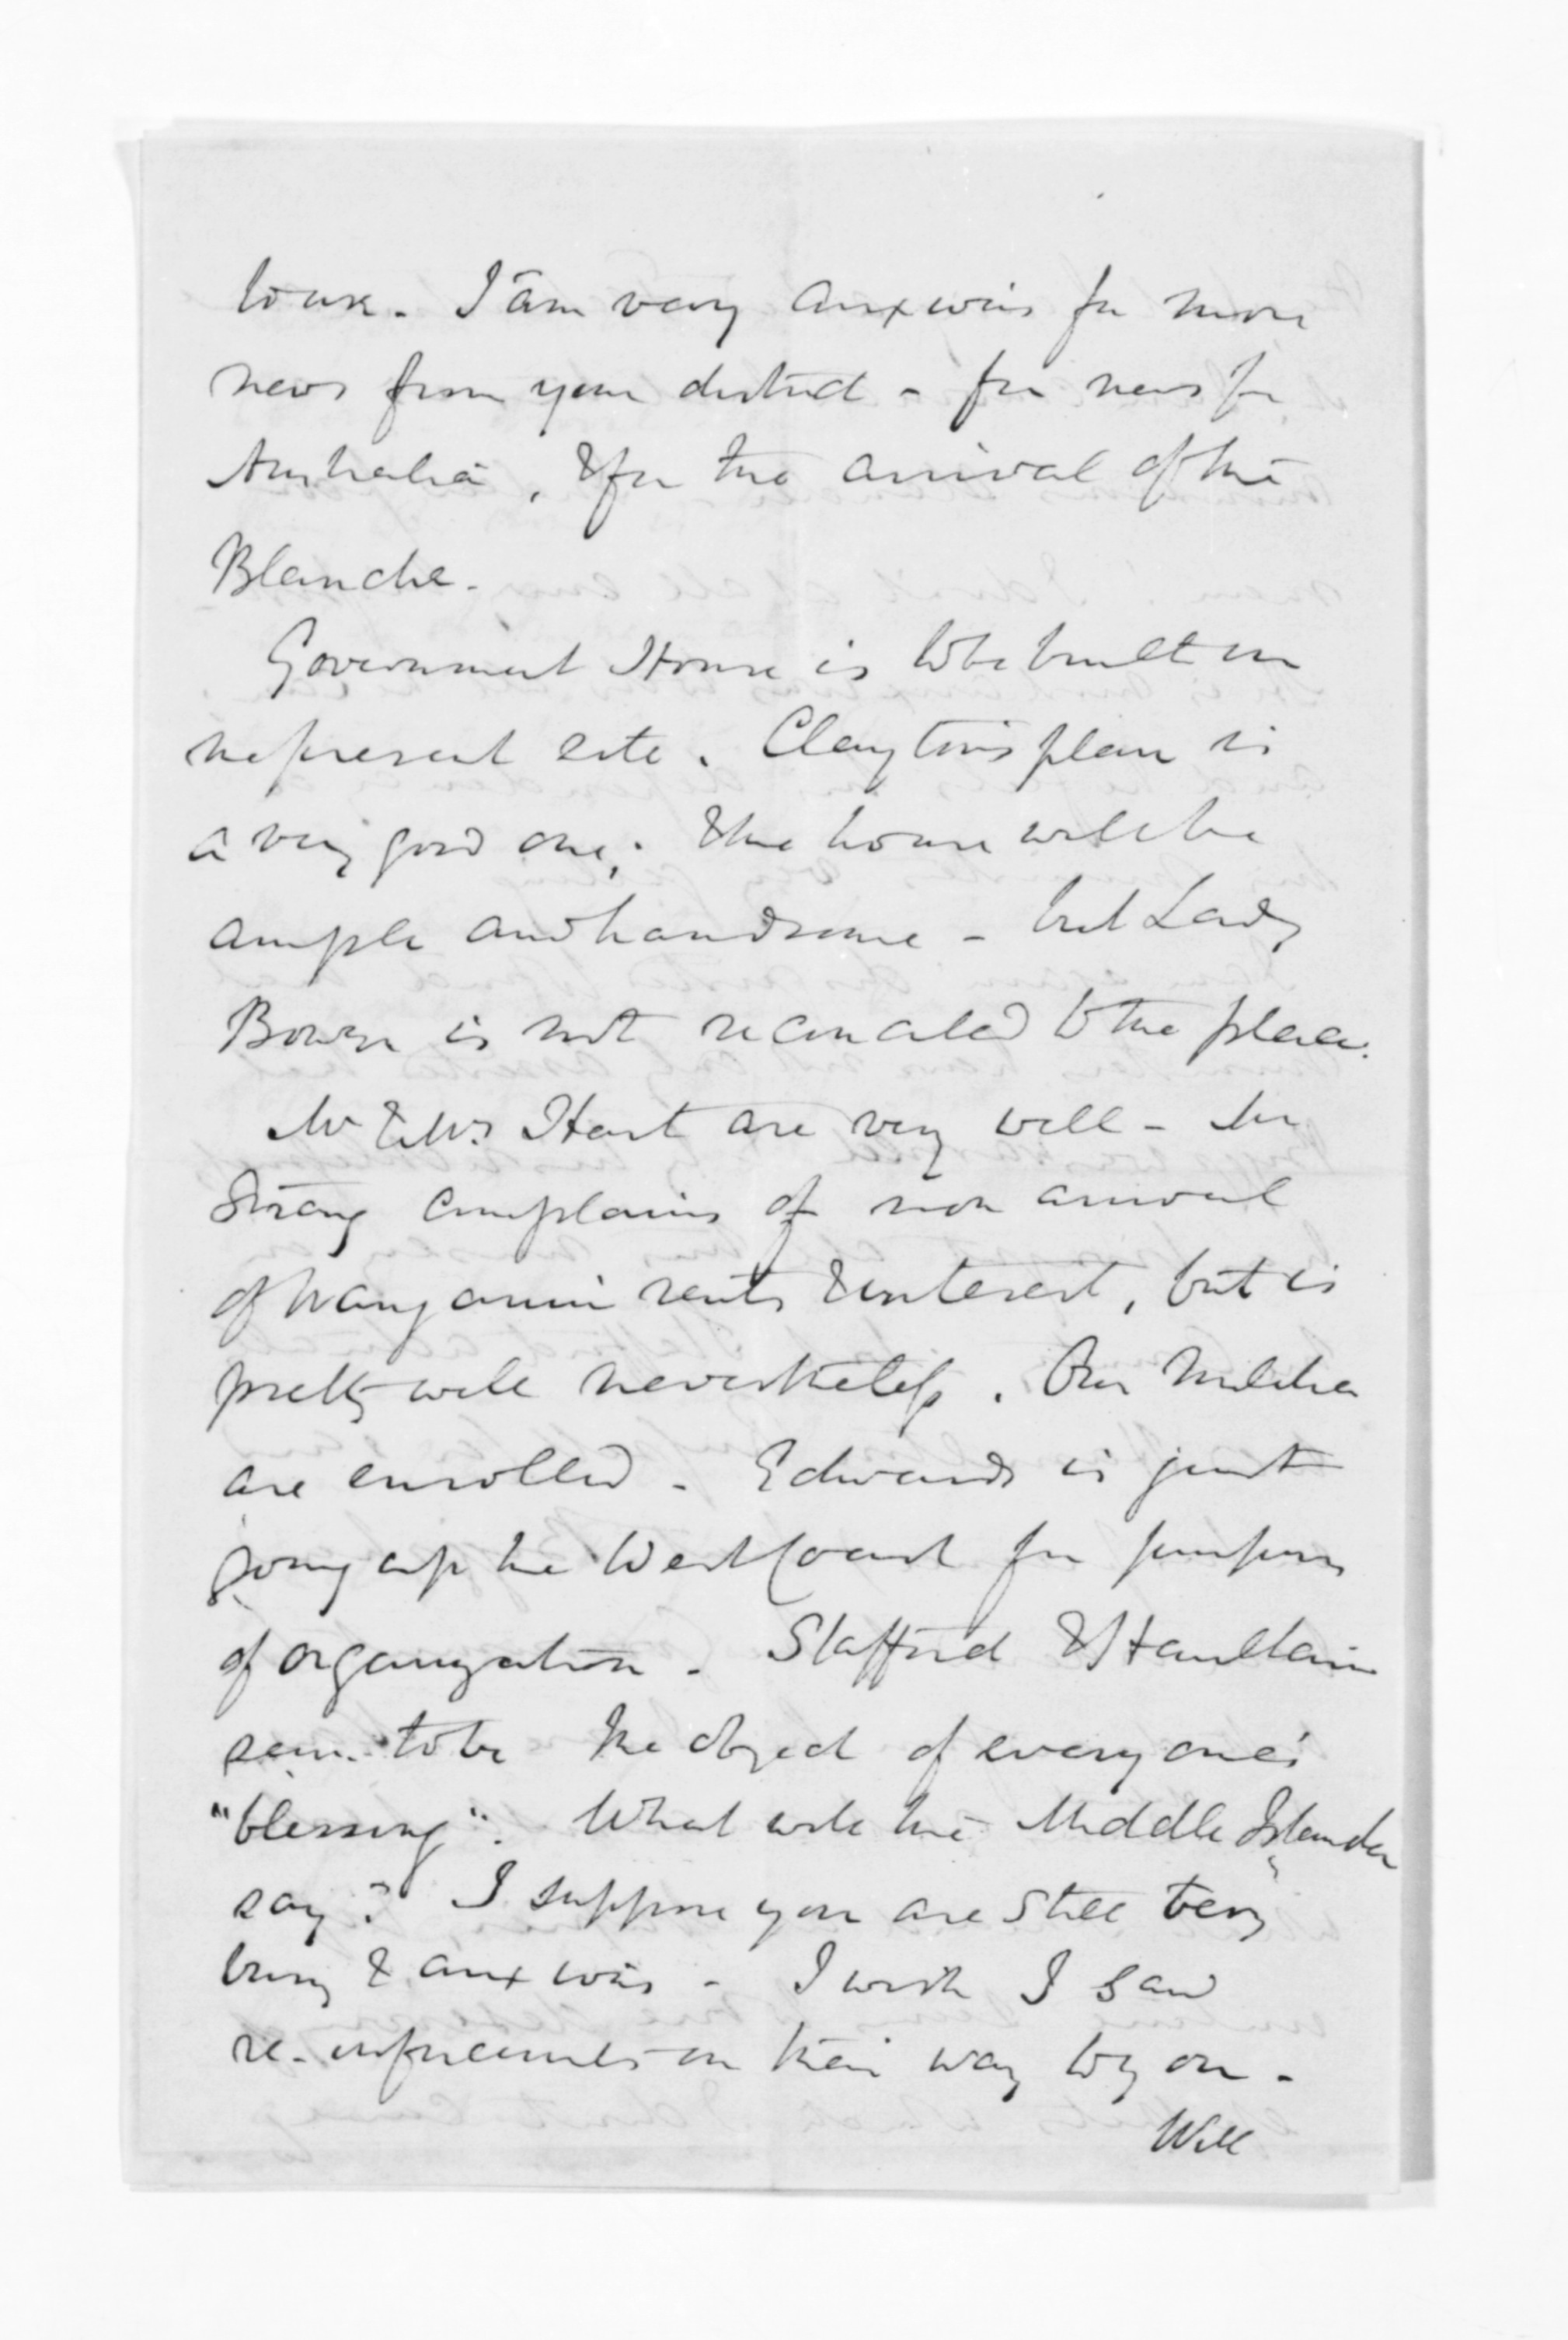 town. I am very anxious for more
news from your district - for news fr
Australia, & for the arrival of the
Blanche.
Government House is to be built on
the present site. Clayton's plan is
a very good one; & the house will be
ample and handsome - but Lady
Bowen is not reconciled to the place.
Mr & Mrs Hart are very well -
Strang complains of non arrival
of Wanganui rents & interest, but is
pretty well nevertheless. Our Militia
are enrolled. Edwards is just
going up the West Coast for purposes
of organization. Stafford & Haultain
seem to be the object of everyone's
"blessing". What will the Middle Islander
say? I suppose you are still very
busy & anxious - I wish I saw
re-inforcements on their way to you -
Will